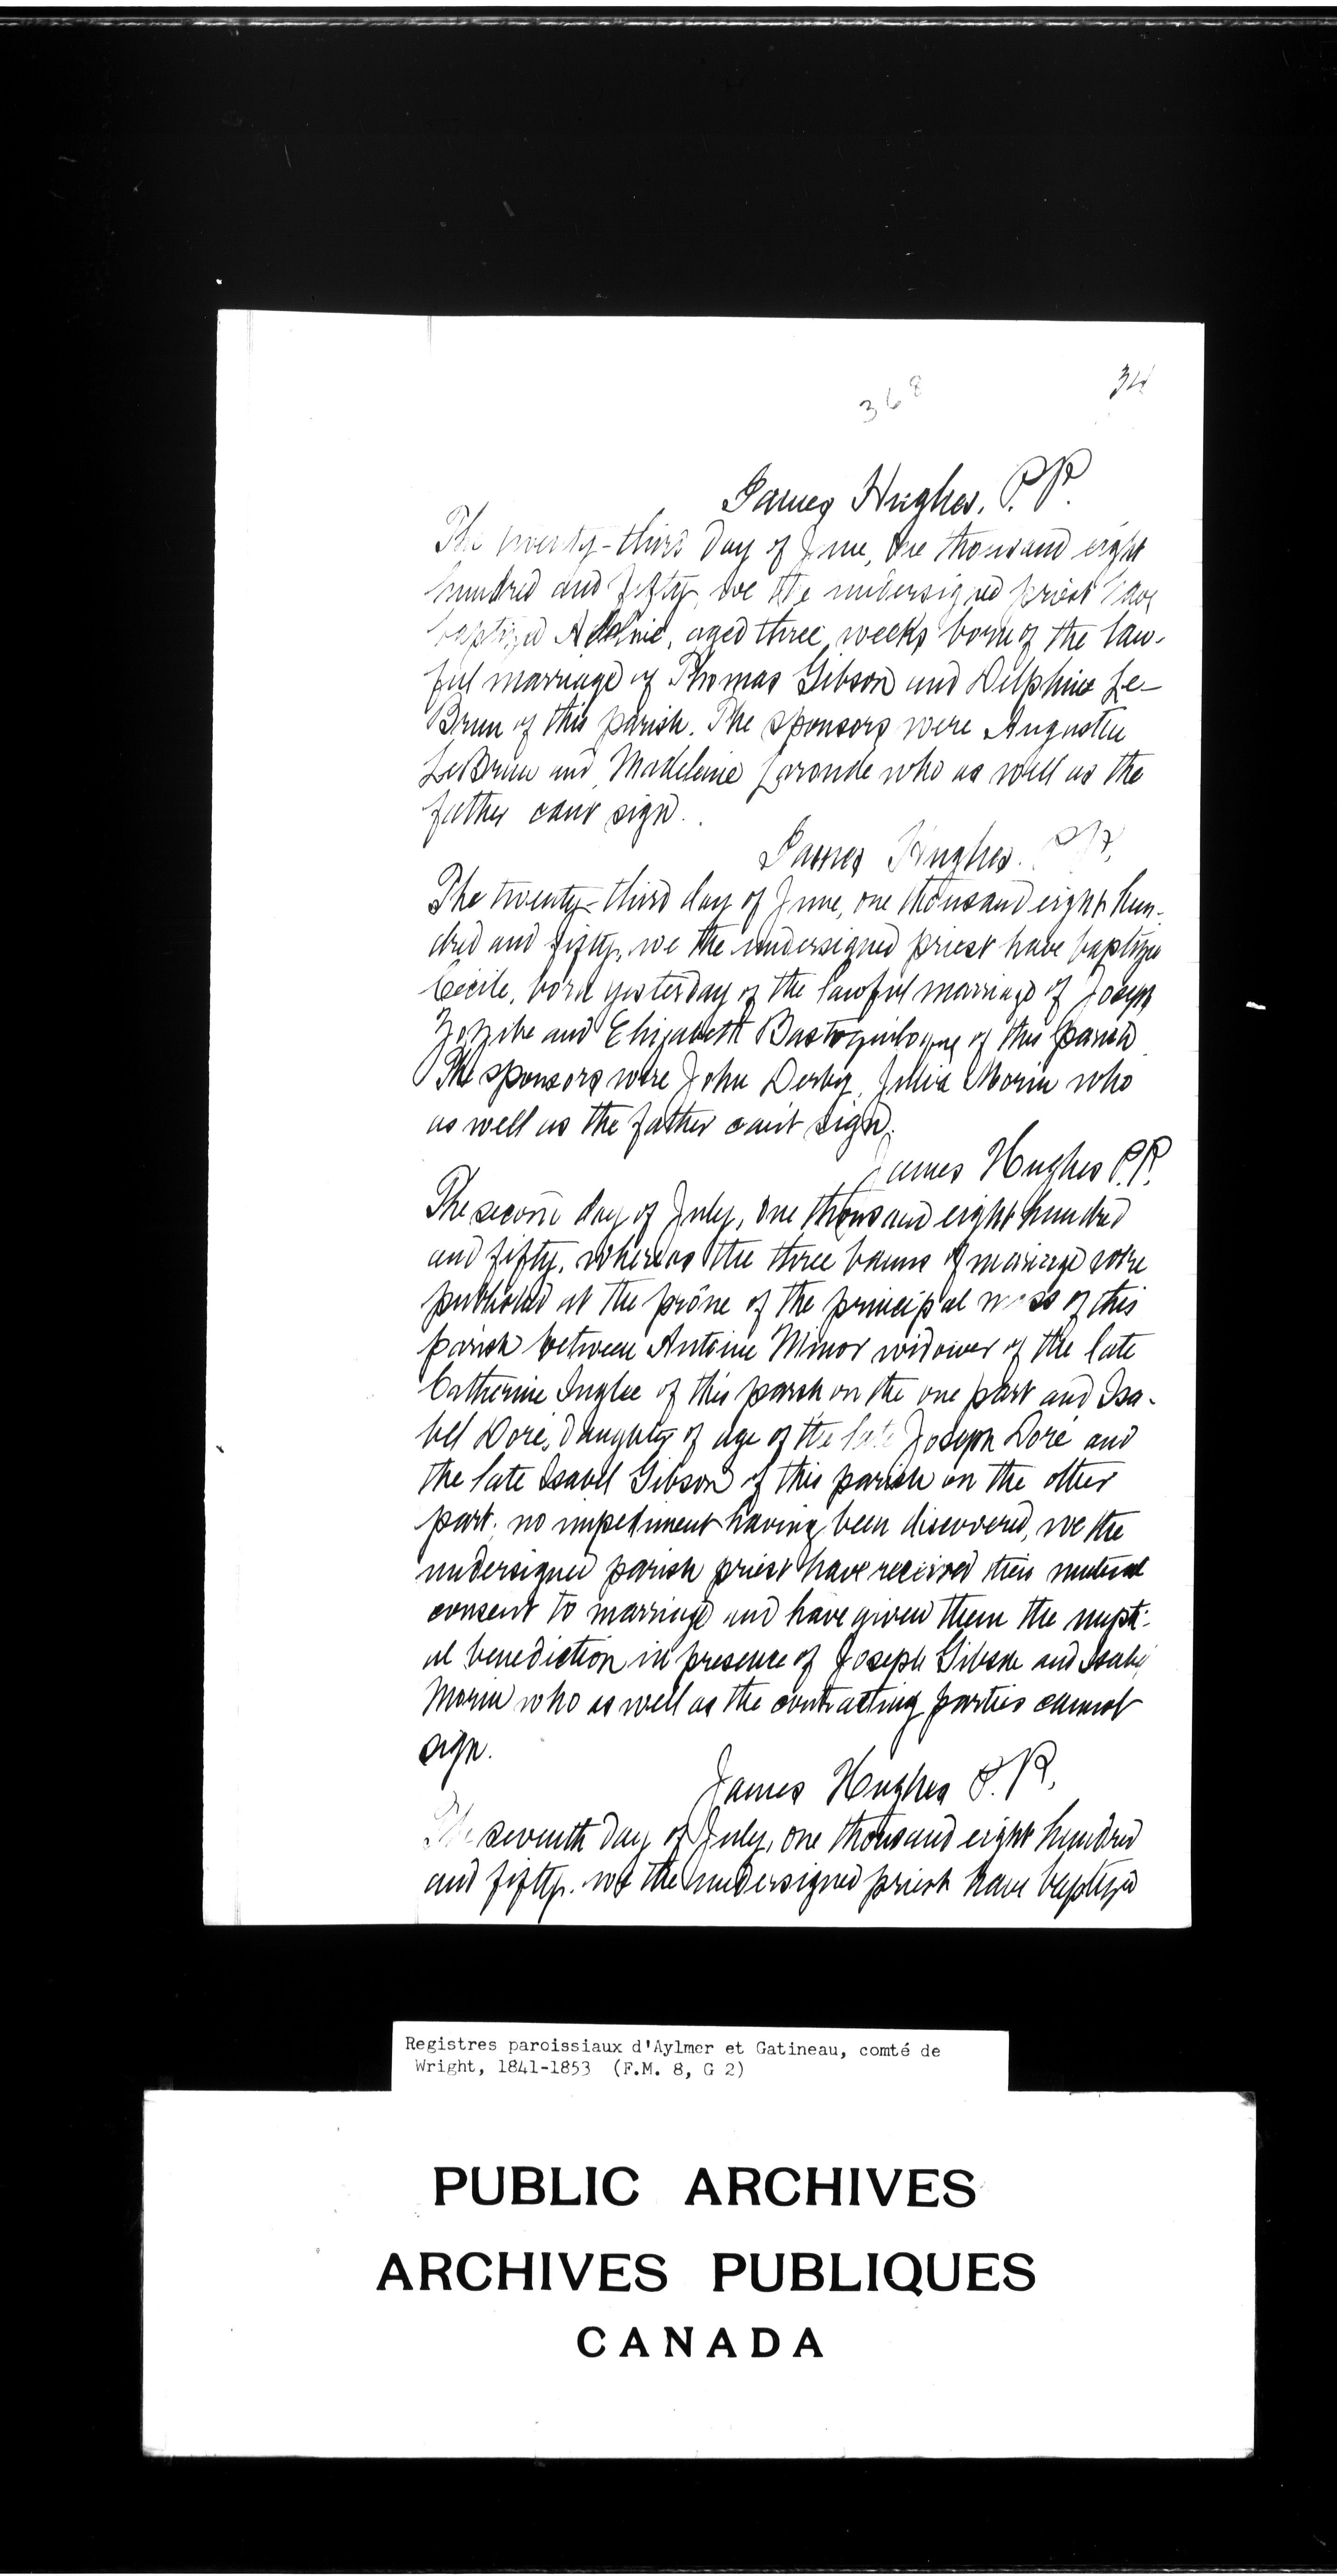 368
34
James Hughes. P.P.
The twenty-third day of June, one thousand eight
hundred and fifty, we the undersigned priest have
baptized aged three weeks born of the law-
ful marriage of Thomas Gibson and Delphine Le-
Brun of this parish. The sponsors were Augustin
LeBrun and Madeleine Laronde who as well as the
father cant sign.
James Hughes. P.P.
The twenty-third day of June, one thousand eight hun-
dred and fifty, we the undersigned priest have baptized
Cécile, born yesterday of the lawful marriage of Joseph
and Elizabeth of this parish
The sponsors were John Derby, Julia Morin who
as well as the father can't sign.
James Hughes P.P.
The second day of July, one thousand eight hundred
and fifty, whereas the three banns of mariage were
published at the prône of the principal mass of this
parish between Antoine Minor widower of the late
Catherine Inglee of this parish on the one part and Isa-
bel Doré, daughter of age of the late Joseph Doré and
the late Isabel Gibson of this parish on the other
part; no impediment having been discovered, we the
undersigned parish priest have received their mutual
consent to marriage and have given them the nupti-
al benediction in presence of Joseph Gibson and
Morin who as well as the contracting parties cannot
sign.
James Hughes P.P.
The seventh day of July, one thousand eight hundred
and fifty, we the undersigned priest have baptized
Registres paroissiaux d'Aylmer et Gatineau, comté de
Wright, 1841-1853 (F.M. 8, G 2)
PUBLIC ARCHIVES
ARCHIVES PUBLIQUES
CANADA